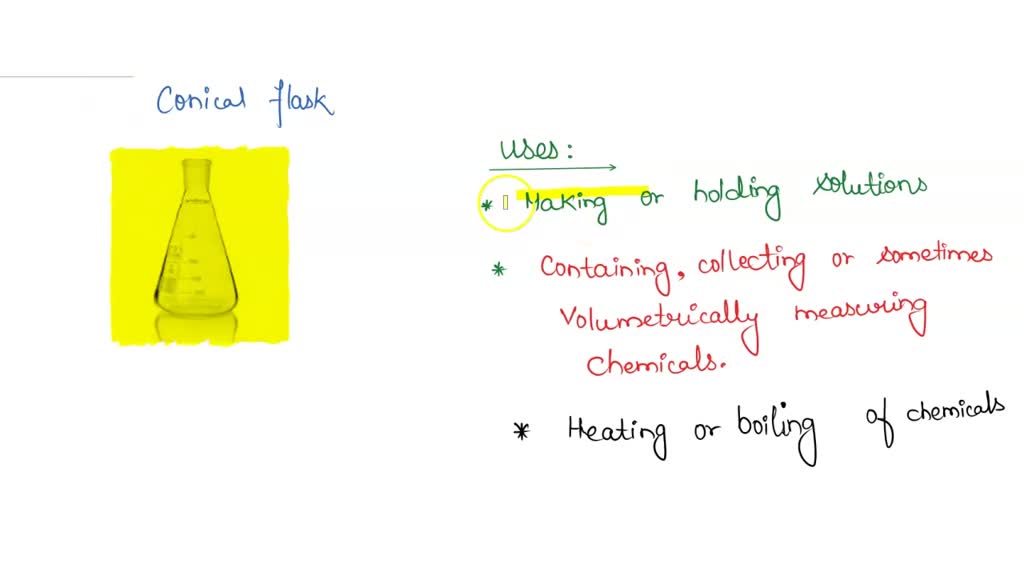 Conical flask
Uses:
* Making or holding solutions
* Containing, collecting or sometimes
Volumetrically measuring
Chemicals.
* Heating or boiling of chemicals